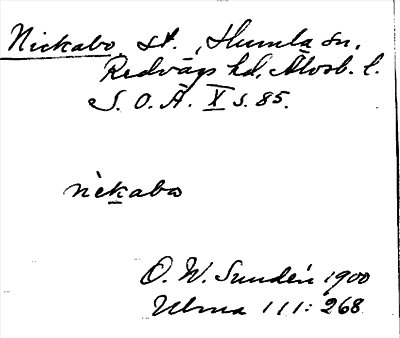 Nickabo, st., Humla sn,
Redvägs hd, Älvsb. l.
S. O. Ä. X s. 85.
nickabo
O. W. Sundén 1900
Ulma 111: 268